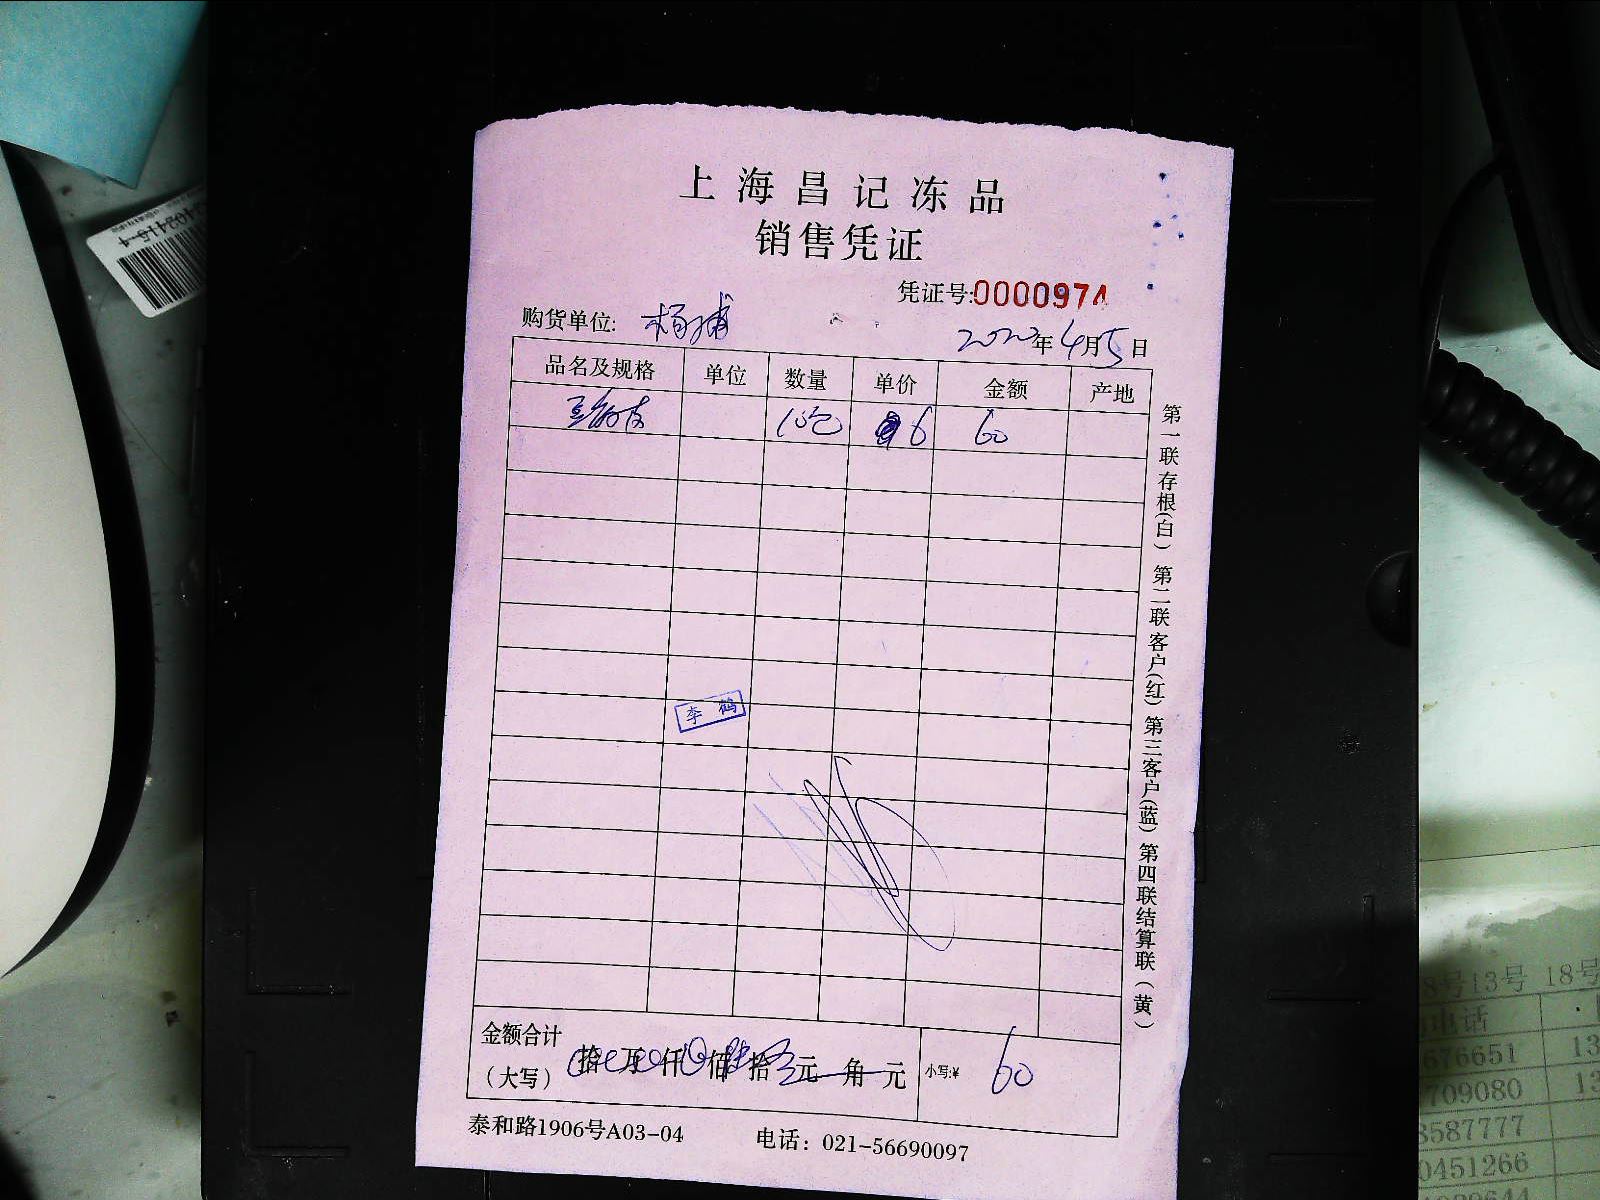 上海昌记冻品
销售凭证
凭证号:0000974
购货单位: 杨浦
2020年4月5日
品名及规格 单位 数量 单价 金额 产地
10包 6 60
李鹤
金额合计
(大写) 拾 万 仟 佰 陆拾 元 角 元 小写:¥ 60
泰和路1906号A03-04 电话：021-56690097
第一联存根(白) 第二联客户(红) 第三客户(蓝) 第四联结算联(黄)
8号13号 18号
电话
676651 13
709080 13
8587777
0451266